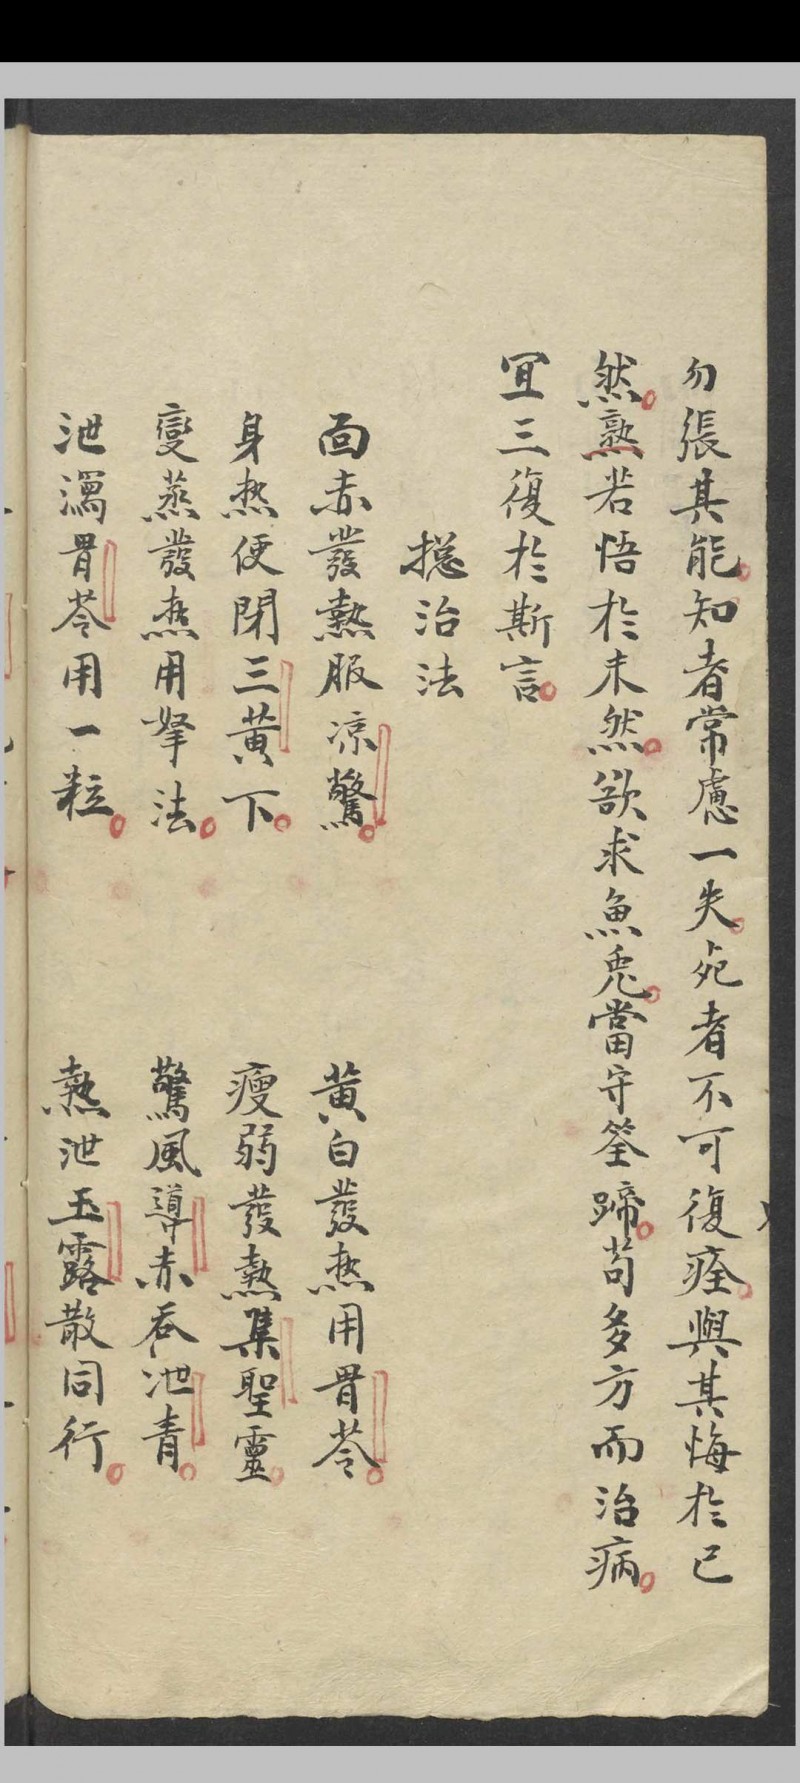 勿張其能知者常慮一失死者不可復痊與其悔於已
然熟若悟於未然欲求魚兎當守筌蹄苟多方而治病
冝三復於斯言
揔治法
面赤發熱服凉驚
黄白發热用胃苓
身热便閉三黄下
瘦弱發熱集聖靈
變蒸發热用拏法
驚風導赤吞泄青
泄瀉胃苓用一粒
熱泄玉露散同行